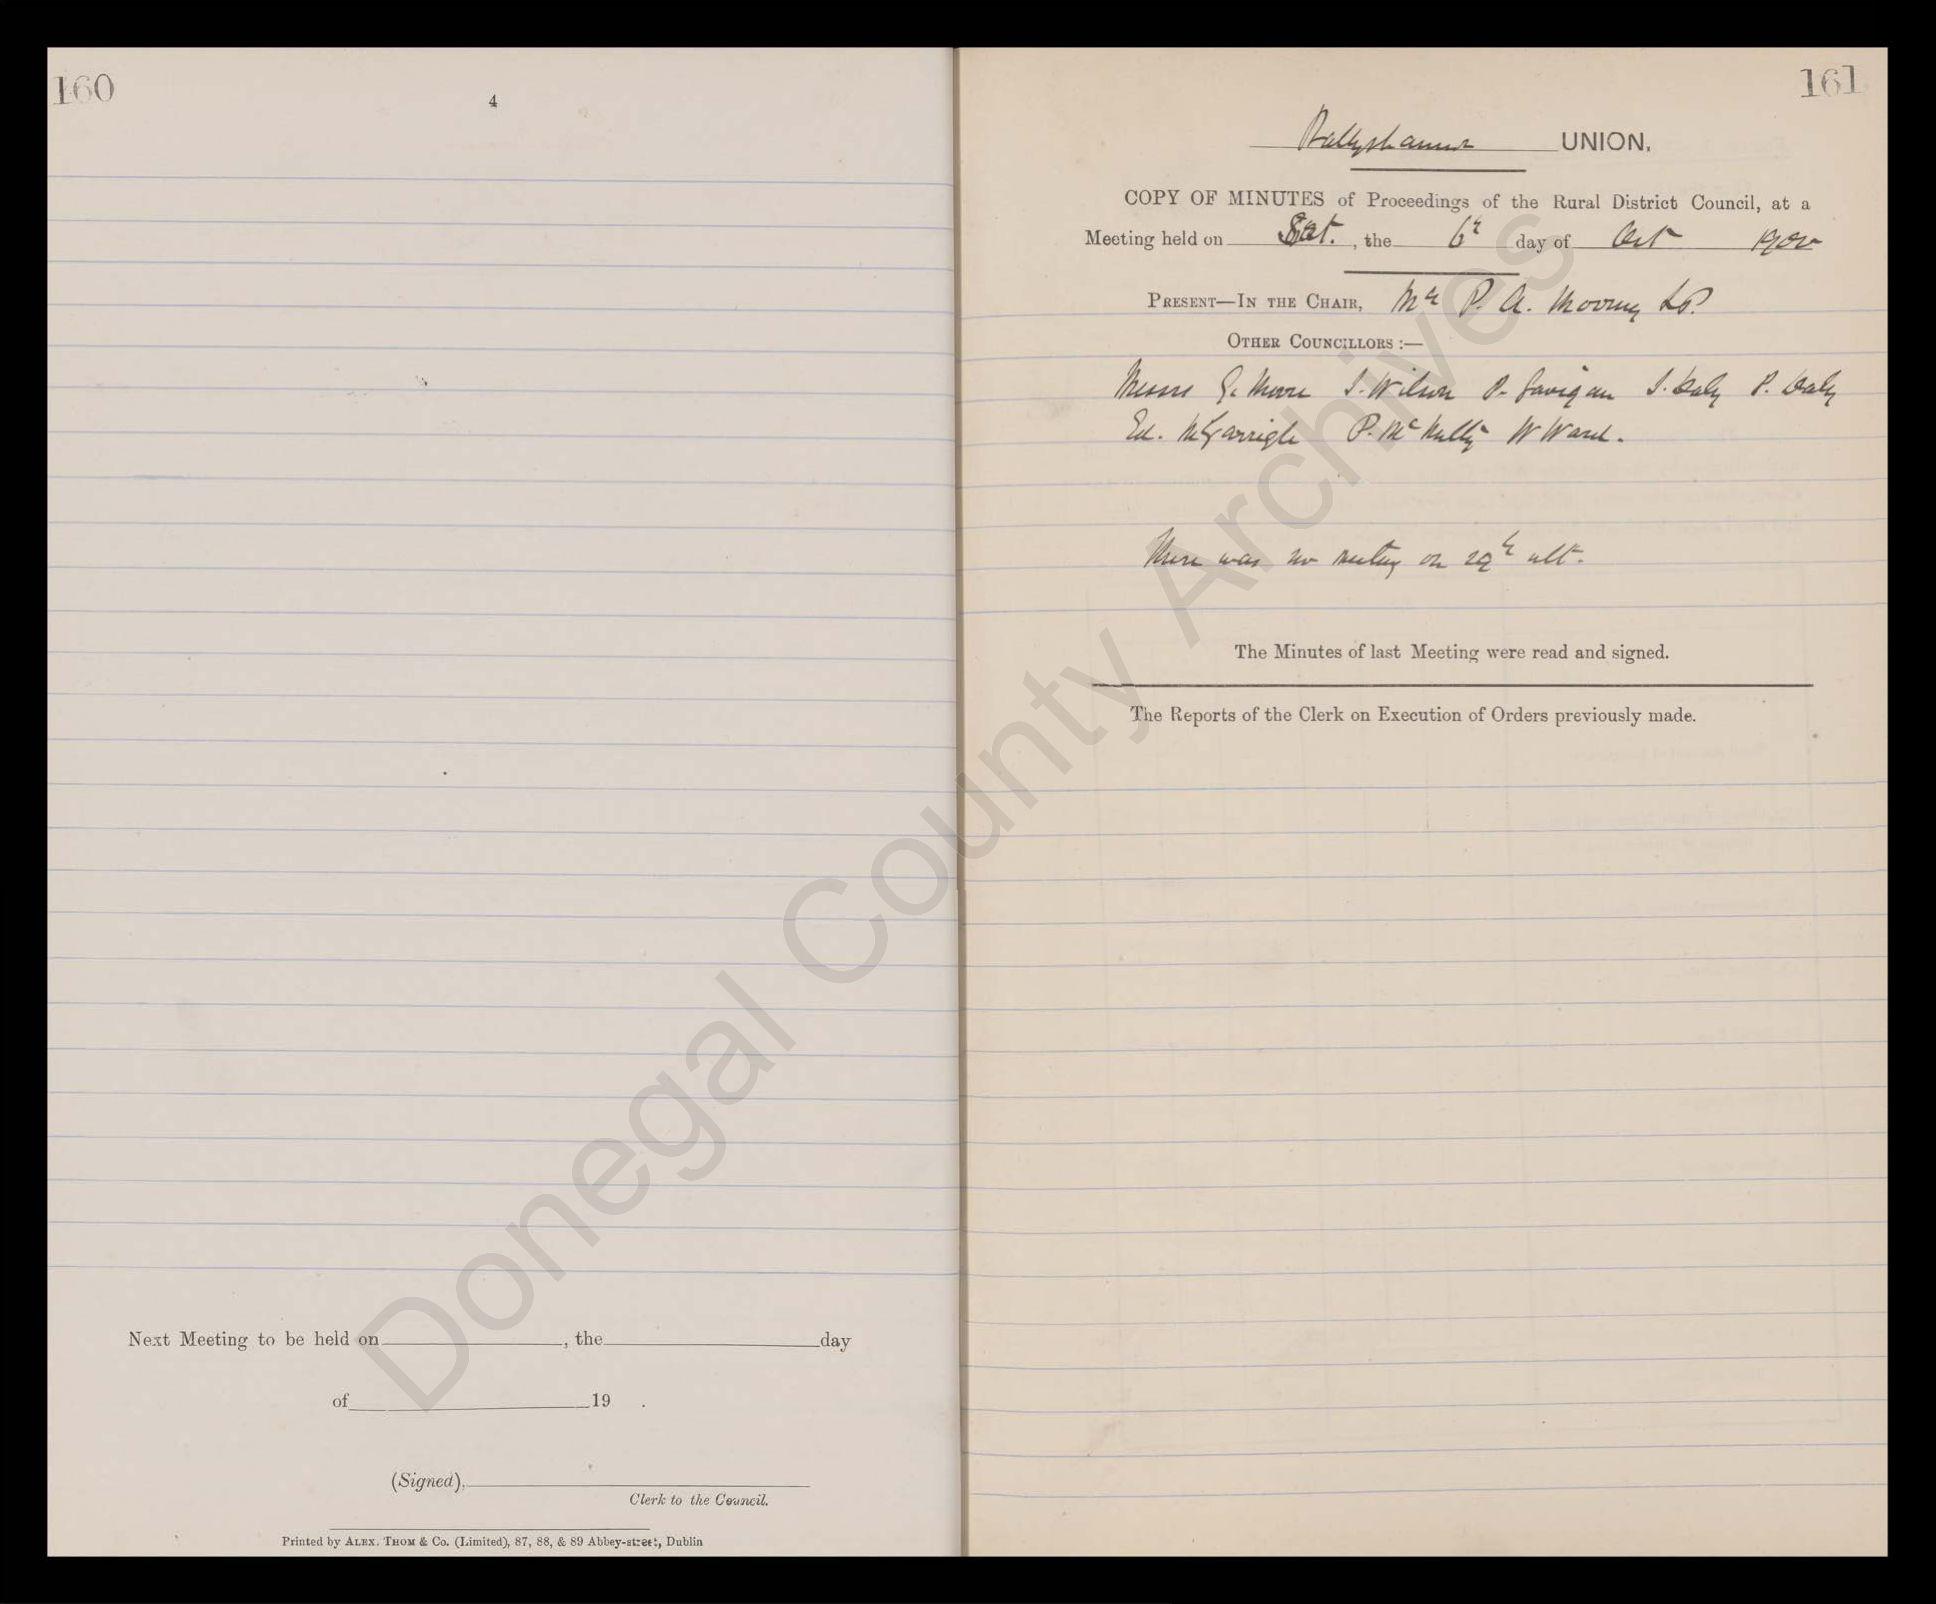 160
4
Next Meeting to be held on , the day
of 19 .
(Signed),
Clerk to the Council.
Printed by ALEX. THOM & Co. (Limited), 87, 88, & 89 Abbey-street, Dublin
161
Ballyshannon UNION.
COPY OF MINUTES of Proceedings of the Rural District Council, at a
Meeting held on Sat. , the 6th day of Oct 1900
PRESENT—IN THE CHAIR, Mr P. A. J.P.
OTHER COUNCILLORS :—
Messrs G. Moore J. Wilson P. Gavigan J. Daly P. Daly
Ed. McGarrigle P. McNulty W Ward.
There was no meeting on 29th ult.
The Minutes of last Meeting were read and signed.
The Reports of the Clerk on Execution of Orders previously made.
Donegal County Archives